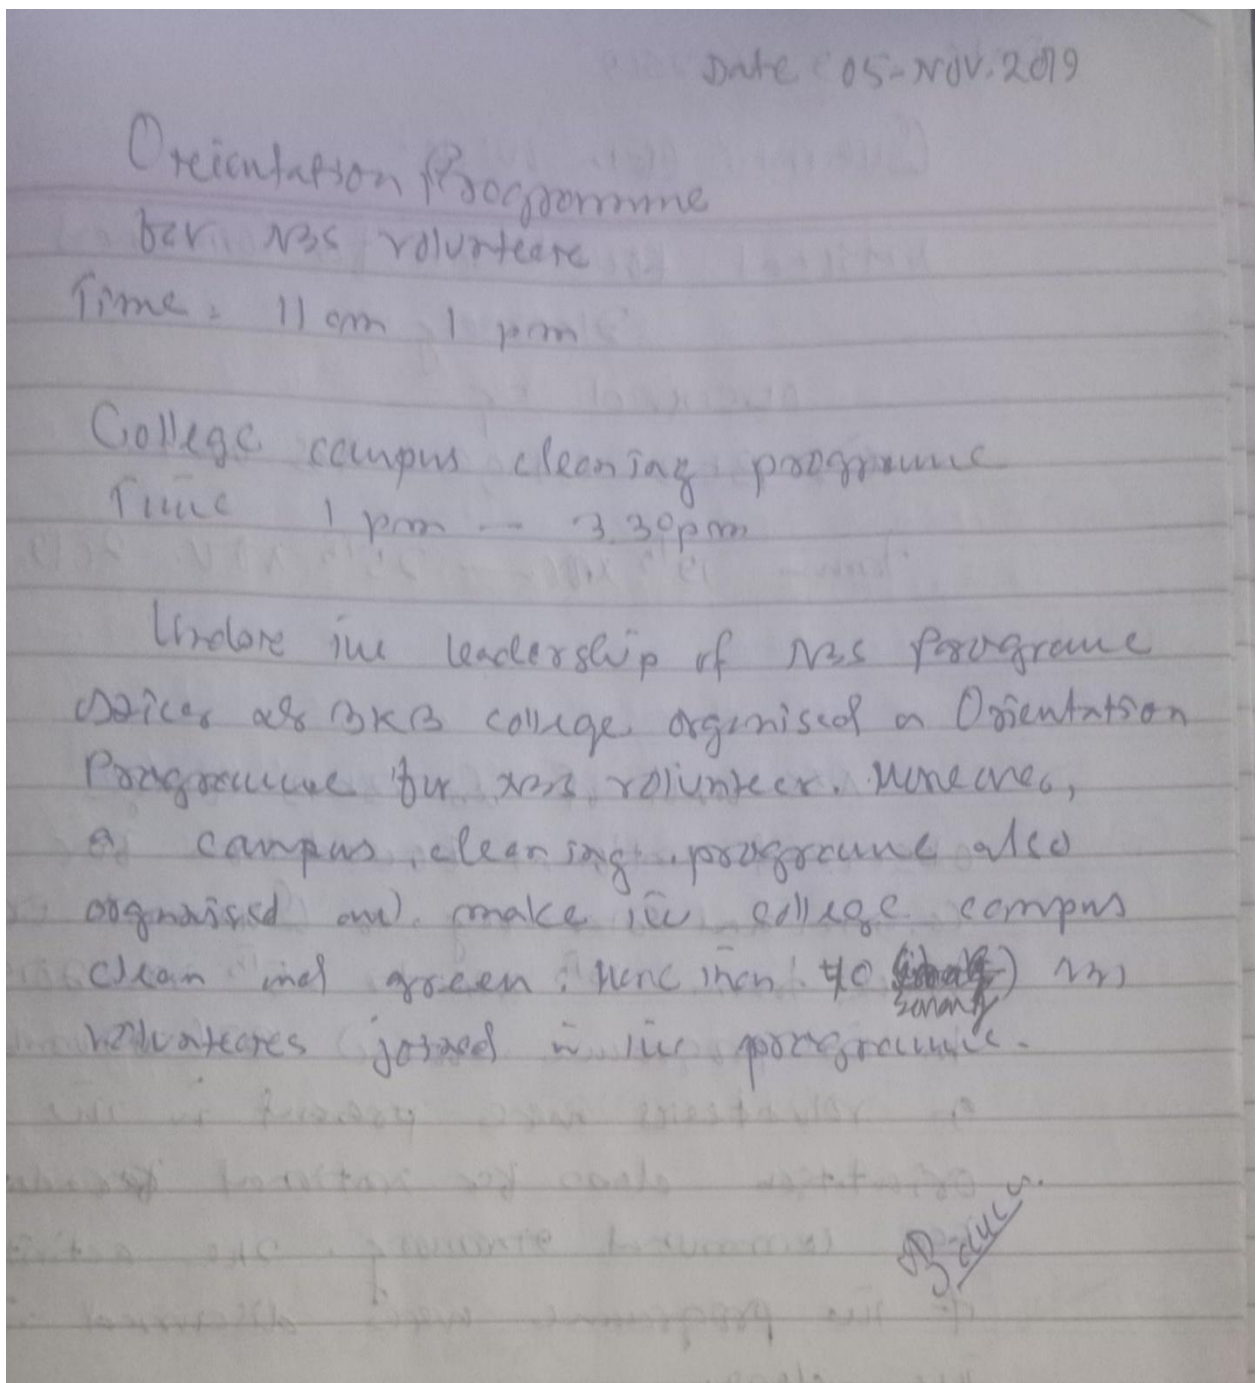 Date 05-NOV. 2019
Oreientation Programme
for NSS volunteere
Time. 11 am 1 pm
College campus cleaning programme
Time 1 pm - 3.30pm
Undore the leadership of NSS Programe
officer of BKB college organised a Orientation
Programme for NSS volunteer. Moreover,
a campus cleaning programe also
organised and make the college campus
clean and green. More then 40 NSS
volunteeres joined in the programme.